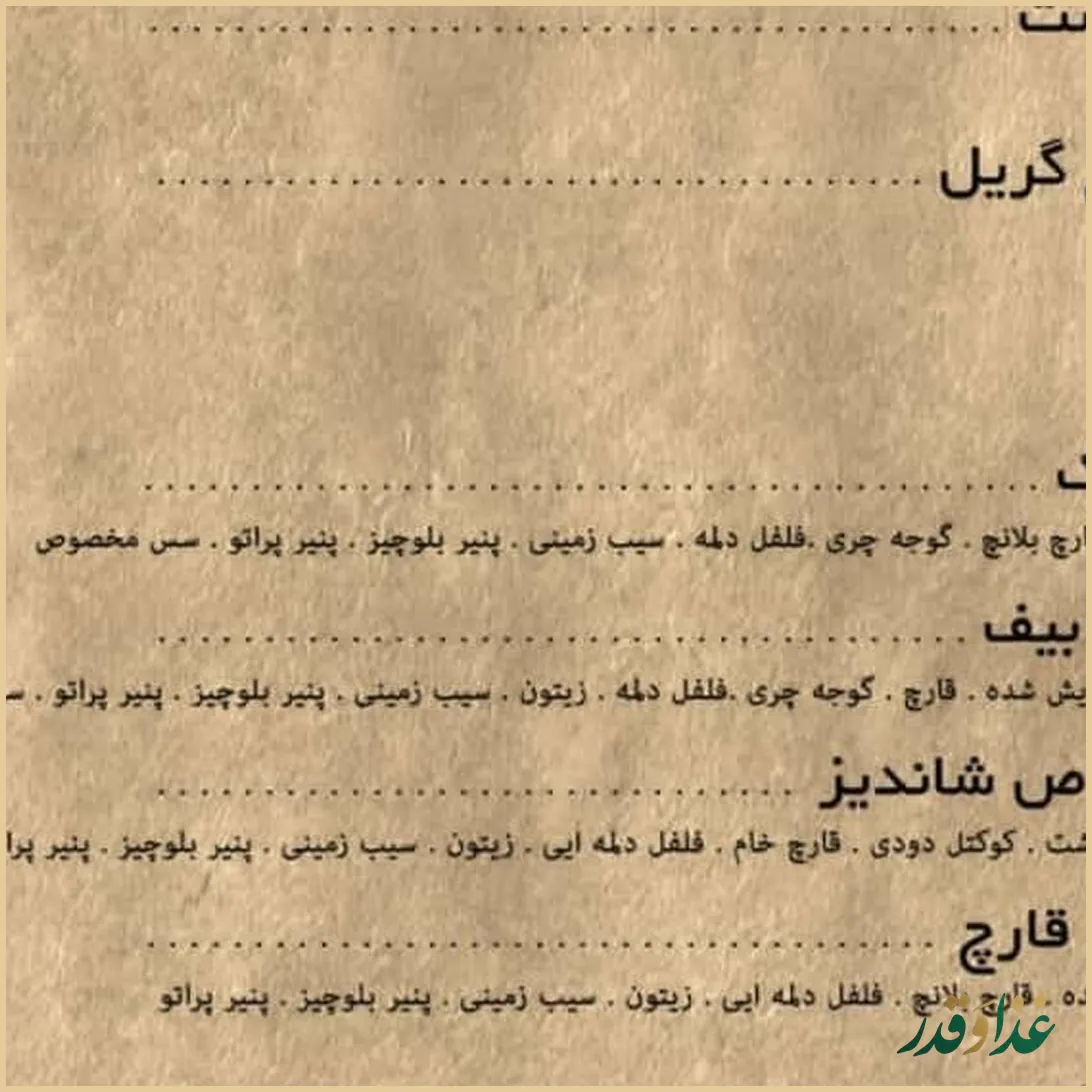 گریل
بلانچ . گوجه چری .فلفل دلمه . سیب زمینی . پنیر بلوچیز . پنیر پراتو . سس مخصوص
بیف
شده . قارچ . گوجه چری .فلفل دلمه . زیتون . سیب زمینی . پنیر بلوچیز . پنیر پراتو .
شاندیز
. کوکتل دودی . قارچ خام . فلفل دلمه ایی . زیتون . سیب زمینی . پنیر بلوچیز . پنیر
قارچ
. قارچ بلانچ . فلفل دلمه ایی . زیتون . سیب زمینی . پنیر بلوچیز . پنیر پراتو
غذا و قدر